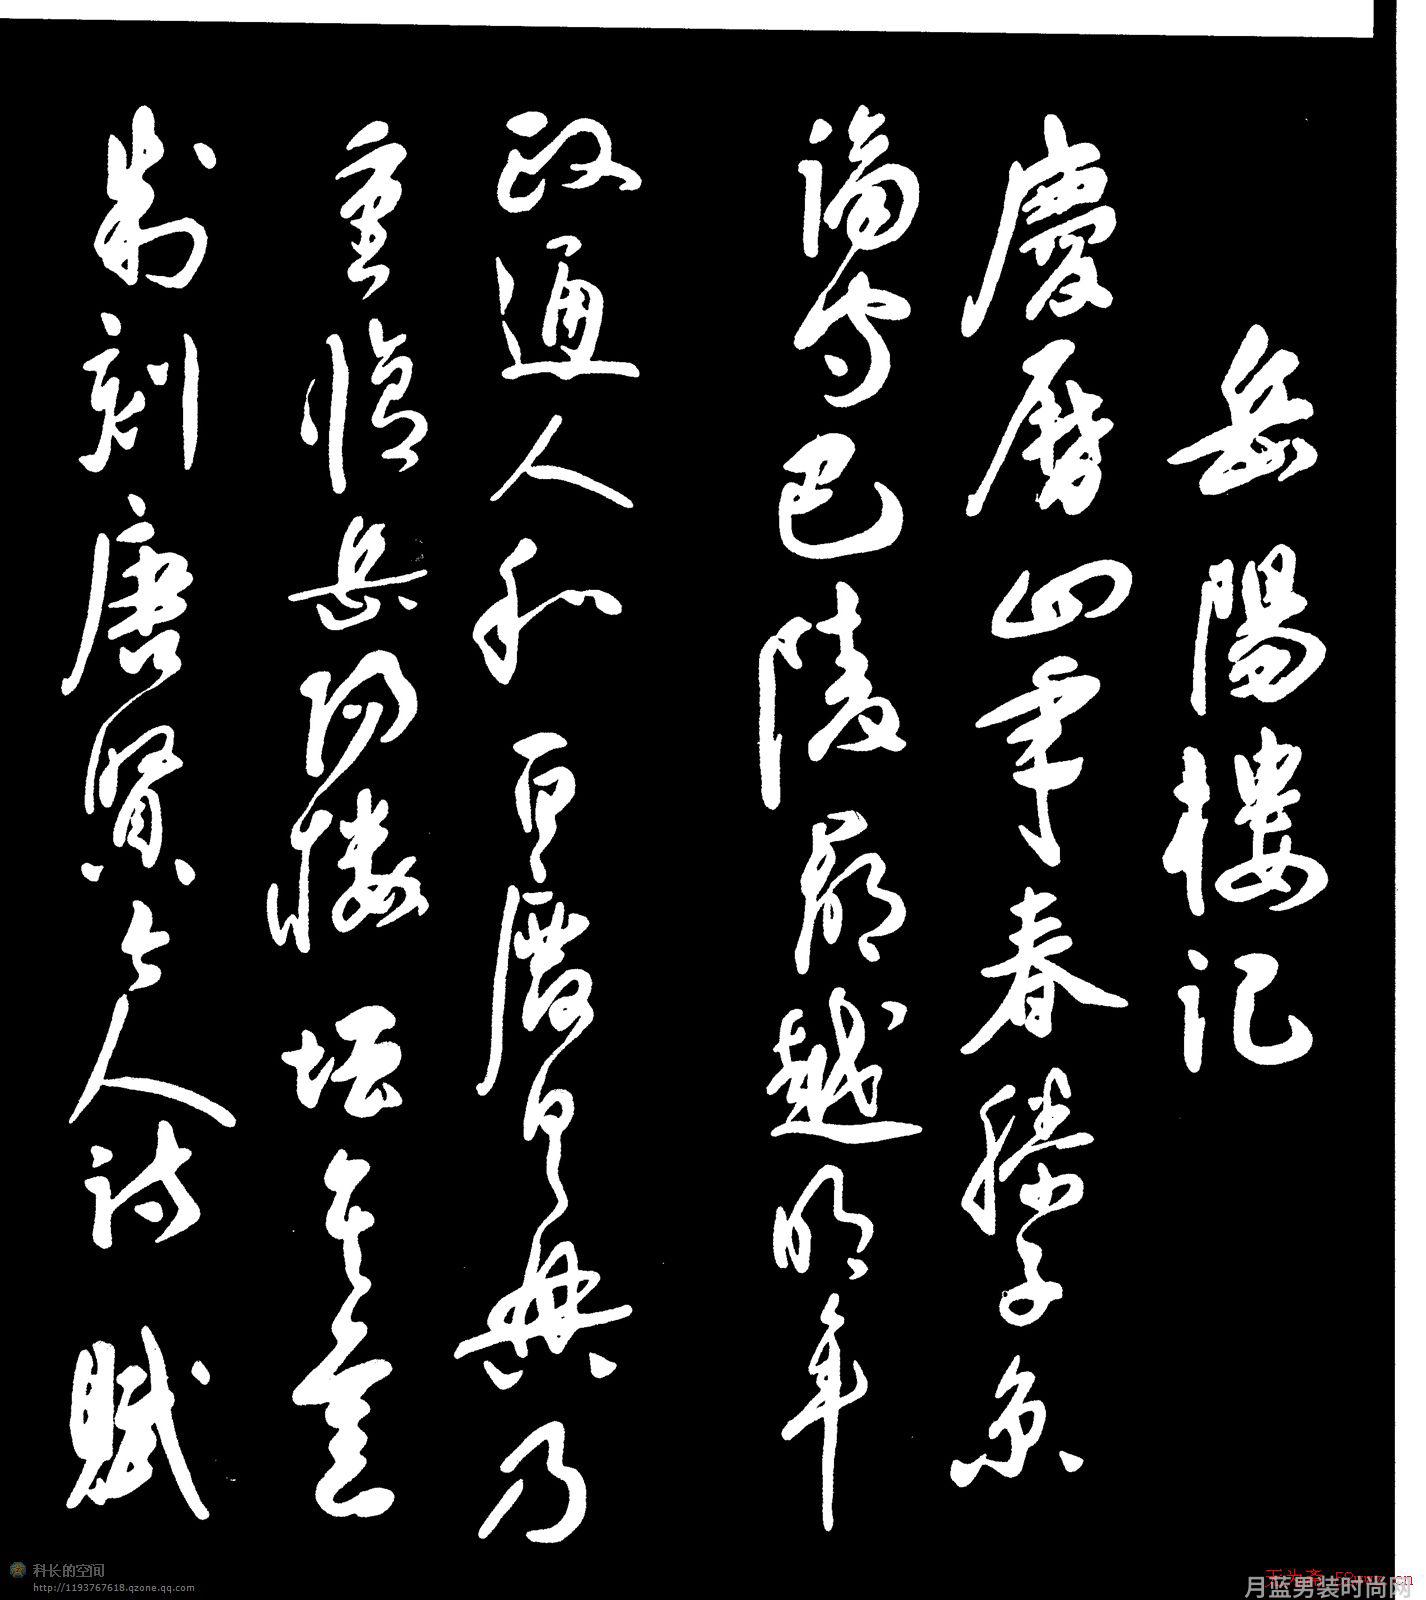 岳陽樓記
慶曆四年春滕子京
謫守巴陵郡越明年
政通人和百廢具興乃
重修岳陽樓增其舊
制刻唐賢今人詩賦
科长的空间
http://1193767618.qzone.qq.com
月蓝男装时尚网